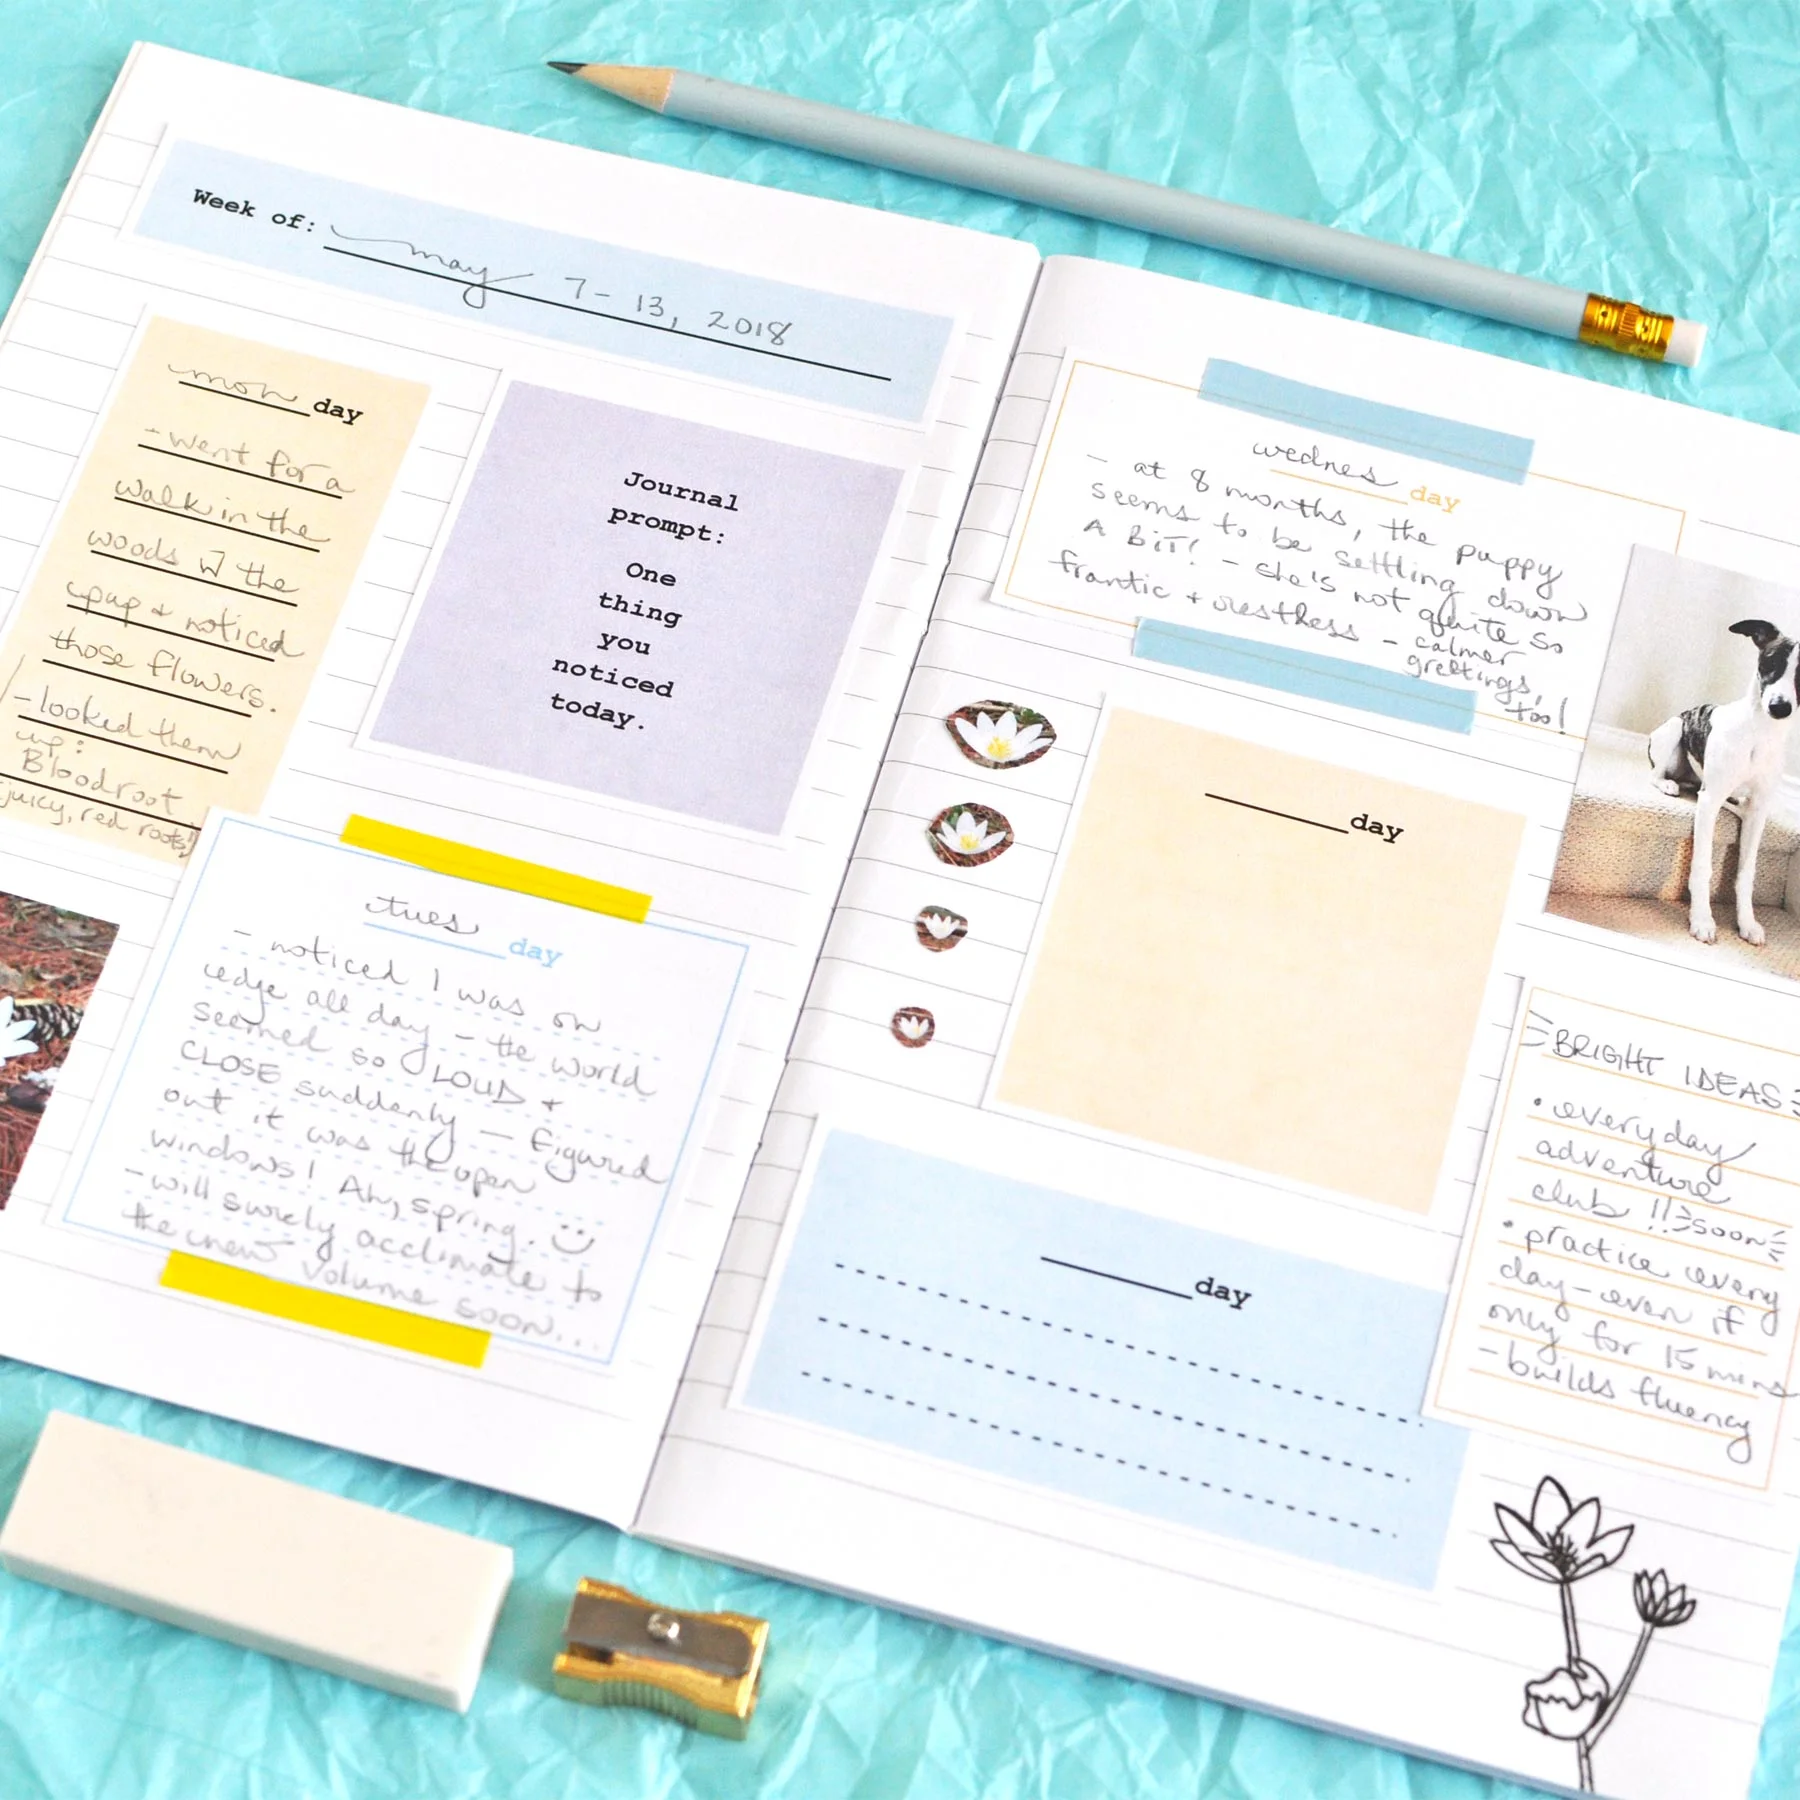 Week of: may 7-13, 2018
mon day
- went for a
walk in the
woods w/ the
pup & noticed
those flowers.
- looked them
up:
Bloodroot
juicy, red roots!
Journal
prompt:
One
thing
you
noticed
today.
tues day
- noticed I was on
edge all day - the world
seemed so LOUD +
CLOSE suddenly — figured
out it was the open
windows! Ah, spring. :)
- will surely acclimate to
the new volume soon...
wednes day
- at 8 months, the puppy
seems to be settling down
A BIT! - she's not quite so
frantic + restless - calmer
greetings,
too!
day
day
BRIGHT IDEAS
• everyday
adventure
club !! soon
• practice every
day - even if
only for 15 mins
- builds fluency